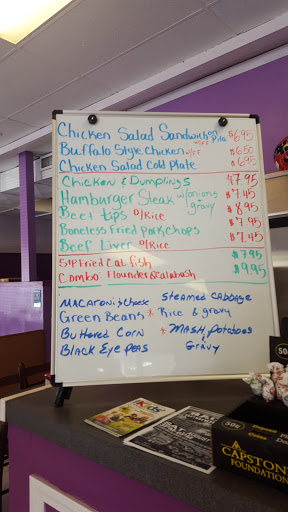 Chicken Salad Sandwich on Pita w/FF $6.95
Buffalo Style Chicken w/FF $6.50
Chicken Salad Cold Plate $6.95
Chicken & Dumplings $7.95
Hamburger Steak w/onions & gravy $7.45
Beef tips o/Rice $8.95
Boneless Fried Porkchops $7.45
Beef Liver o/Rice $7.45
5/P Fried Catfish $7.95
Combo Flounder & Calabash $9.95
Macaroni & Cheese Steamed Cabbage
Green Beans * Rice & gravy
Buttered Corn * Mash Potatoes
Black Eye Peas & Gravy
kids
50¢
50¢
CAPSTONE
FOUNDATION